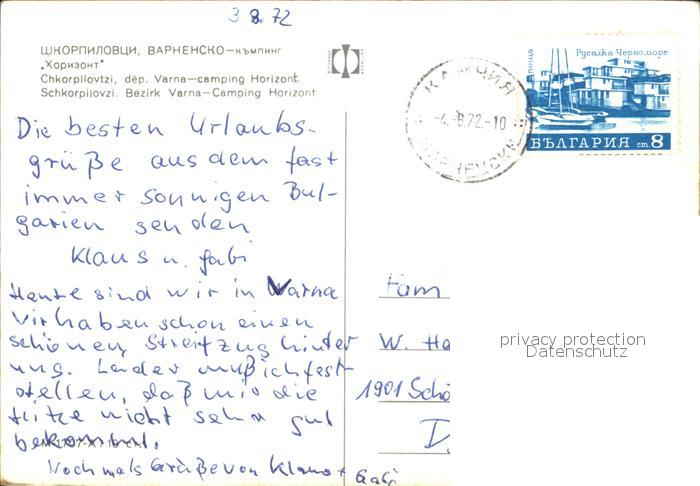 3.8.72
ШКОРПИЛОВЦИ, ВАРНЕНСКО—къмпинг
„Хоризонт"
Chkorpilovtzi, dép. Varna—camping Horizont
Schkorpilovzi. Bezirk Varna—Camping Horizont
КАМЧИЯ
-4.-8.72.-10
ВАРНЕНСКИ
поща
Русалка Черноморе
БЪЛГАРИЯ ст 8
Die besten Urlaubs-
grüße aus dem fast
immer sonnigen Bul-
garien senden
Klaus u. Gabi
Heute sind wir in Warna
Wir haben schon einen
schönen Streifzug hinter
uns. Leider muß ich fest-
stellen, daß mir die
Hitze nicht sehr gut
bekommt.
Nochmals Grüße von Klaus + Gabi
Fam
W. Ha
1901 Schö
D
privacy protection
Datenschutz